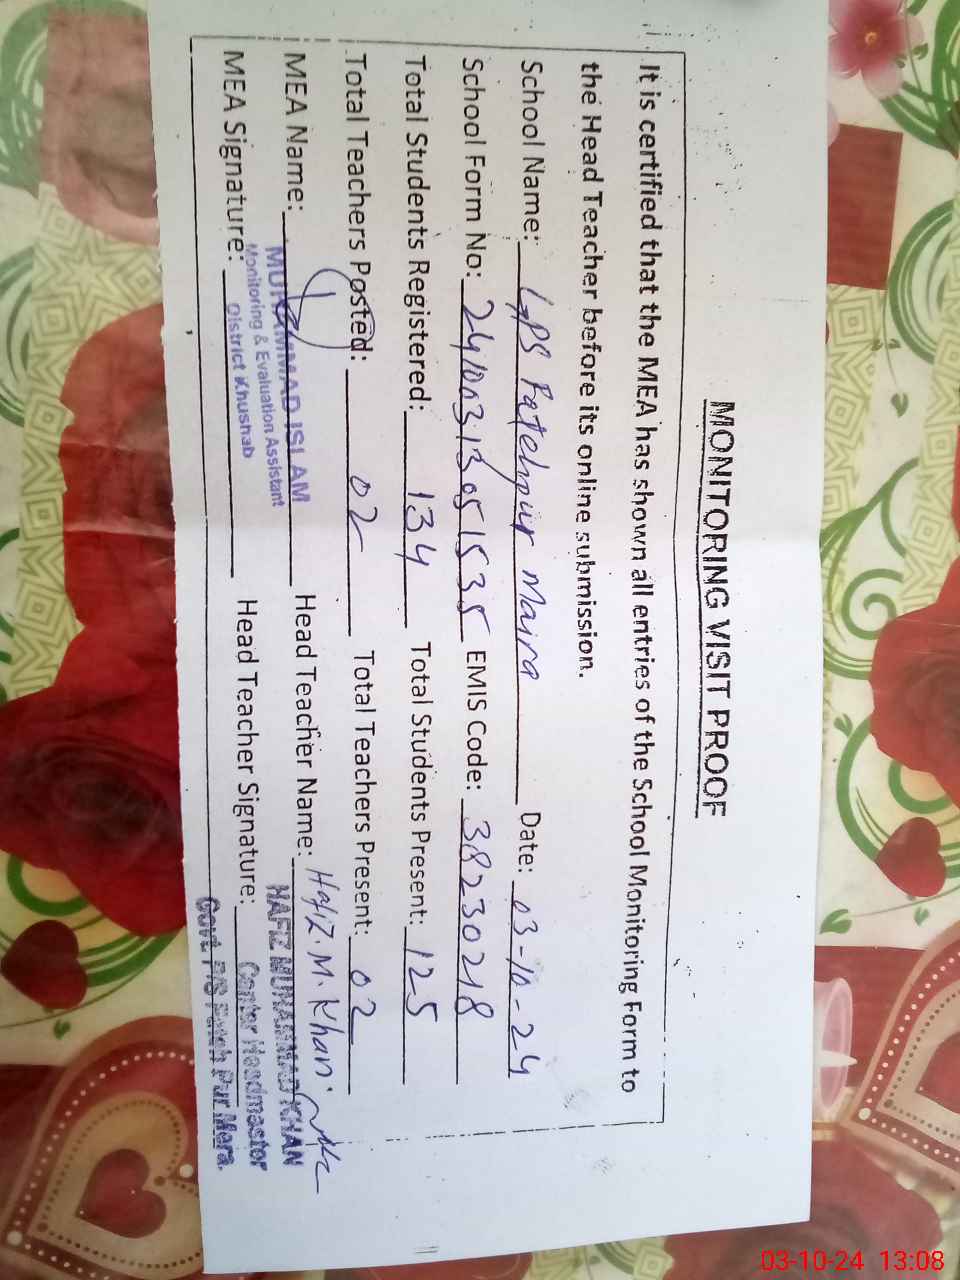 MONITORING VISIT PROOF
It is certified that the MEA has shown all entries of the School Monitoring Form to
the Head Teacher before its online submission.
School Name: GPS Fatehpur Maira Date: 03-10-24
School Form No: 24100313051535 EMIS Code: 38230218
Total Students Registered: 134 Total Students Present: 125
Total Teachers Posted: 02 Total Teachers Present: 02
MEA Name: MUHAMMAD ISLAM Head Teacher Name: Hafiz. M. Khan
Monitoring & Evaluation Assistant
District Khushab
HAFIZ MUHAMMAD KHAN
MEA Signature: Head Teacher Signature:
Center Headmaster
Govt. P/S Fateh Pur Mera.
03-10-24 13:08